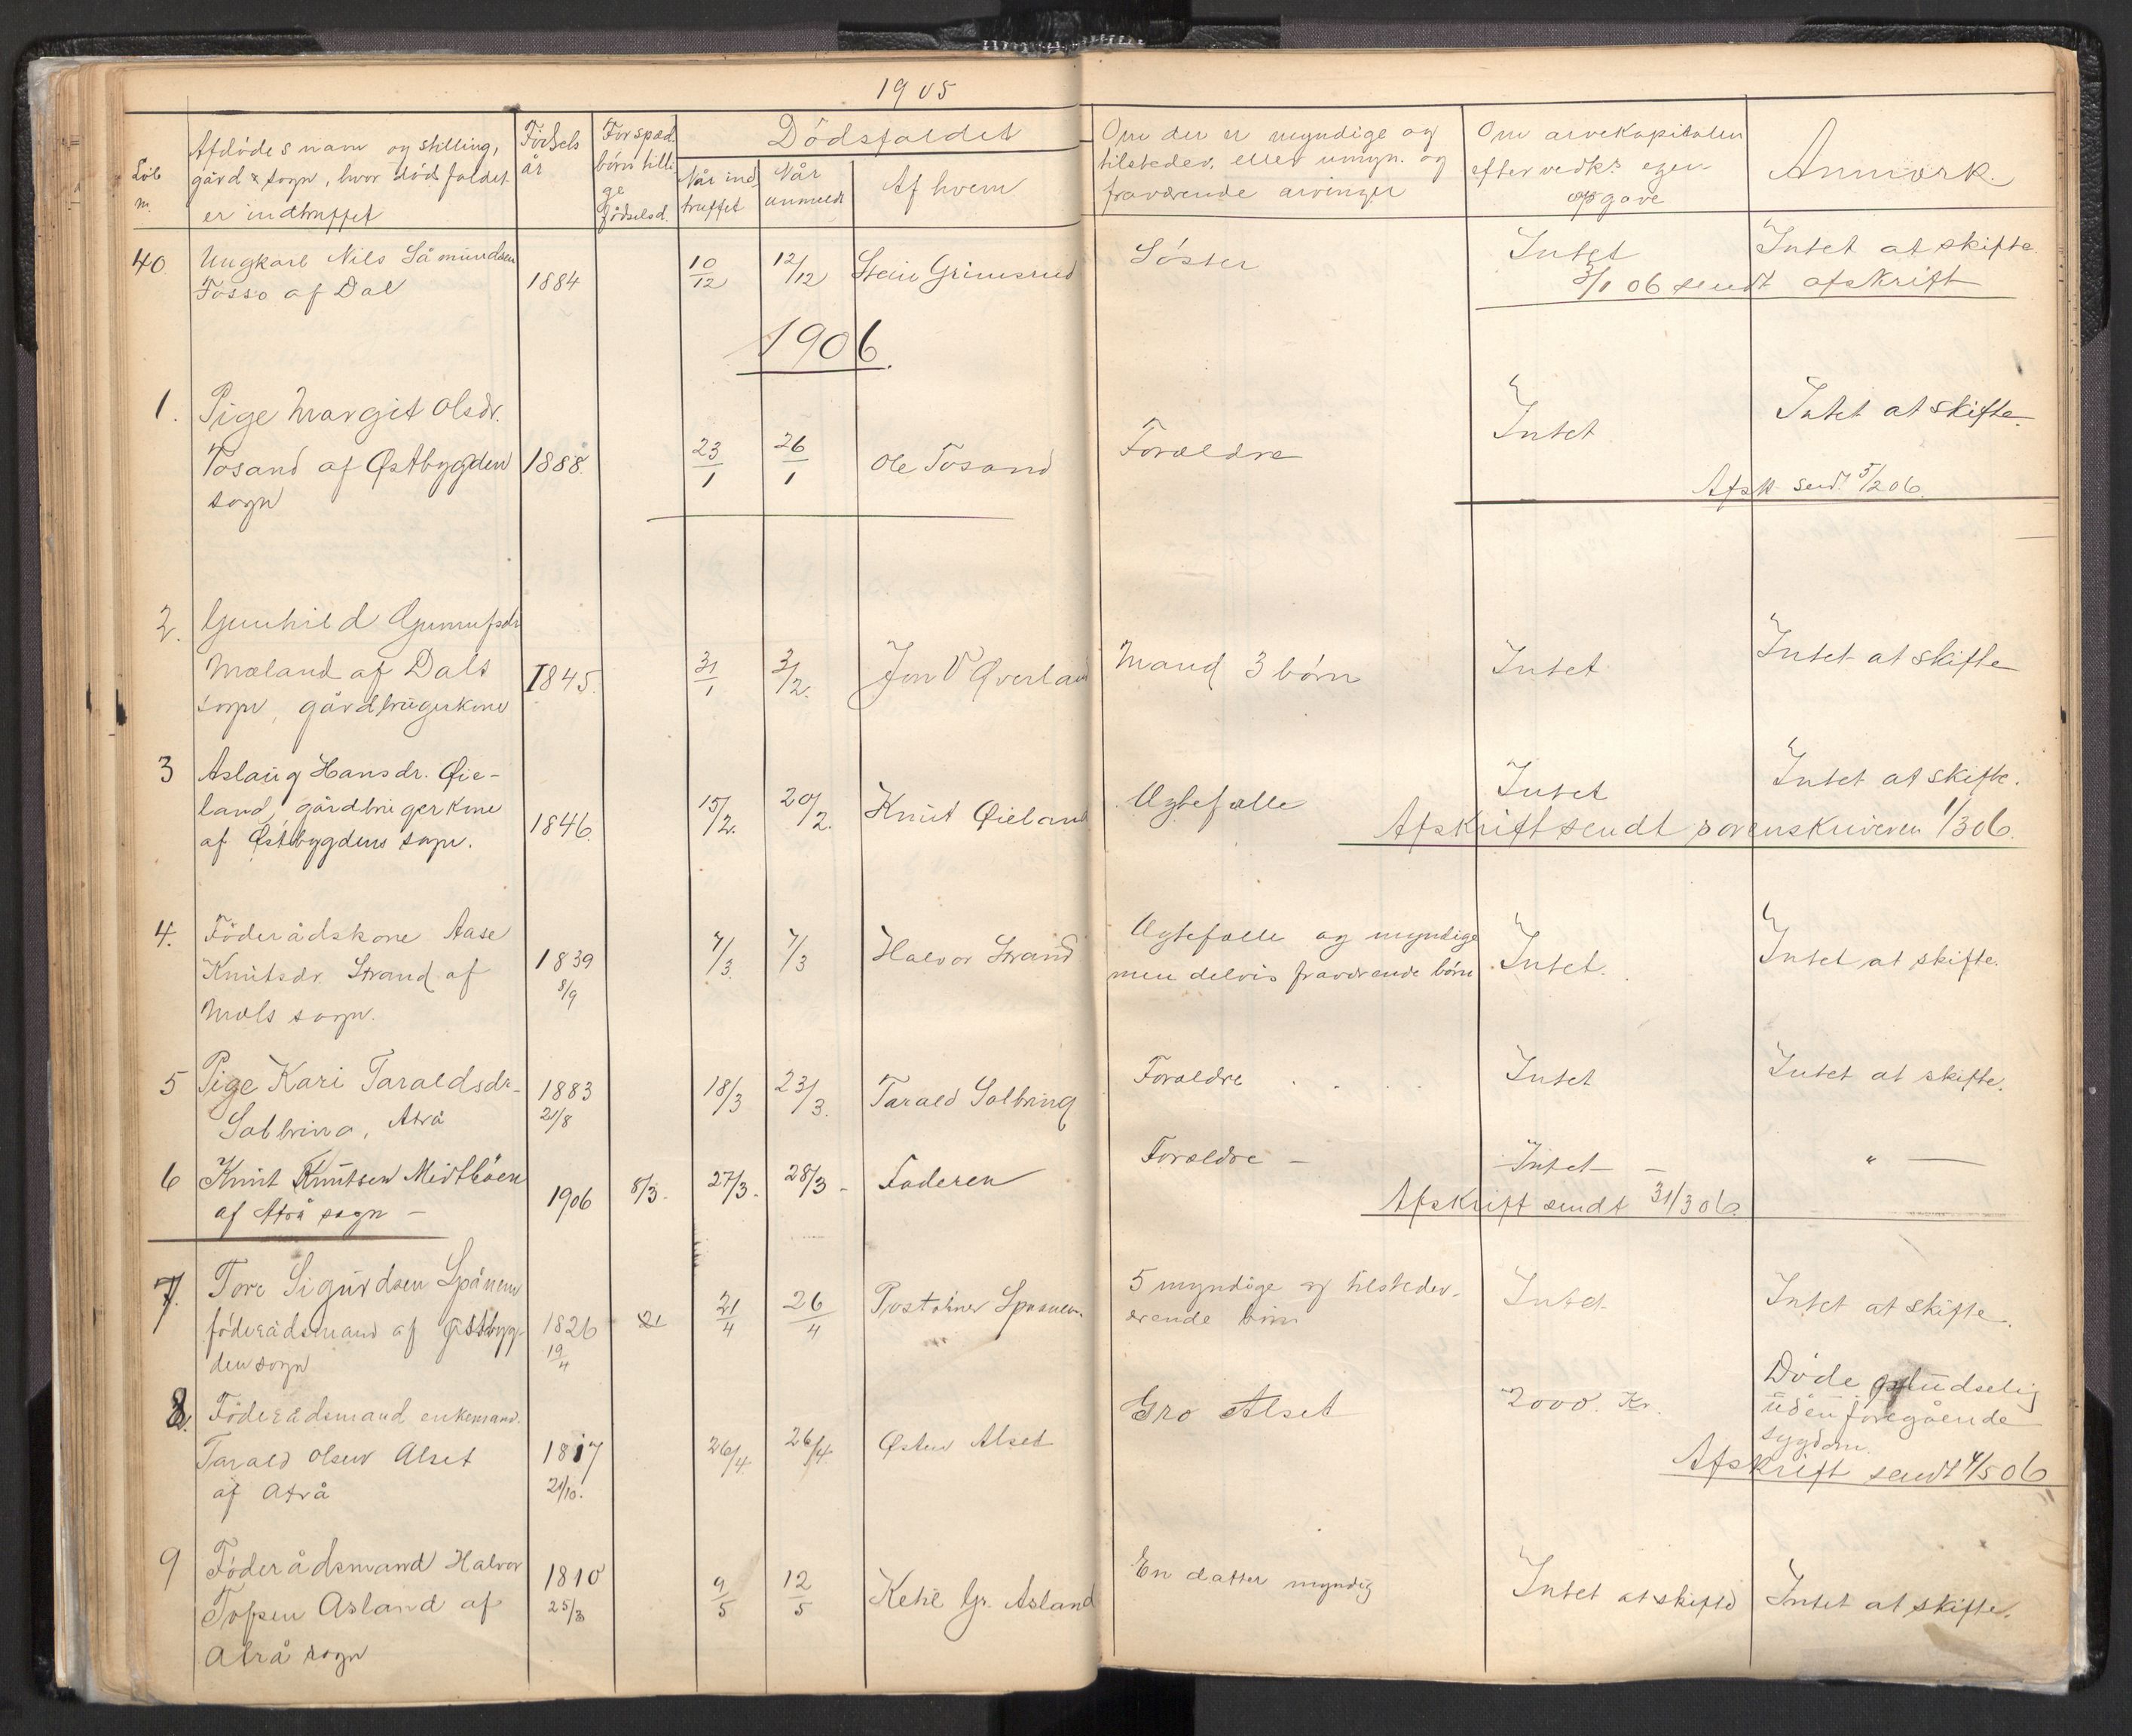 1905
Löb
n.
Afdödes navn og stilling,
gård & sogn, hvor dödsfaldet
er indtruffet
Födsels
år
For spæd
börn tilli
ge
födselsd.
Dödsfaldet
Når ind
truffet
Når
anmeldt
Af hvem
Om der er myndige og
tilstedev. eller umyn. og
fraværende arvinger
Om arvekapitalen
efter vedk: egen
opgave
Anmærk.
40 Ungkarl Nils Såmundsen
Fosso af Dal 1884 10/12 12/12 Stein Grimsrud Söster Intet Intet at skifte
3/1 06 sendt afskrift
1906.
1. Pige Margit Olsdr.
Tosand af Østbygden 1888. 23/1 26/1 Ole Tosand Forældre Intet Intet at skifte.
sogn
Afsk. send. 5/2 06.
2. Gunhild Gunnufsdr
Mæland af Dals 1845. 31/1 3/2. Jon V Qverland Mand 3 börn Intet Intet at skifte
sogn, gårdbrugerkone
3 Aslaug Hansdr. Øie-
land, gårdbrugerkone 1846. 15/2. 20/2. Knut Øieland Ægtefælle Intet Intet at skifte.
af Østbygdens sogn.
Afskrift sendt sorenskriveren 1/3 06.
4. Föderådskone Aase
Knutsdr. Strand af 1839 8/9 7/3. 7/3 Halvor Strand Ægtefælle og myndige
men delvis fraværende börn Intet. Intet at skifte.
Mæls sogn.
5 Pige Kari Taraldsdr-
Solbring, Atrå 1883 21/8 18/3 23/3. Tarald Solbring Forældre Intet Intet at skifte.
6 Knut Knutsen Midtböen
af Atrå sogn - 1906 8/3. 27/3. 28/3 - Faderen Forældre - Intet - " —
Afskrift sendt 31/3 06.
7. Tore Sigurdsen Spånem
föderådsmand af Østbyg- 1826 19/4 21 21/4 26/4 5 myndige og tilstedev-
ærende börn Intet Intet at skifte.
den sogn
8. Föderådsmand enkemand.
Tarald Olsen Alset 1817 21/10. 26/4 26/4. Østen Alset Gro Alset 2000. Kr. Döde pludselig
uden foregående
sygdom.
af Atrå
Afskrift sendt 4/5 06
9 Föderådsmand Halvor
Tovsen Asland af 1810 25/3 9/5 12/5 Ketil Gr. Asland En datter myndig Intet at skifte Intet at skifte.
Atrå sogn